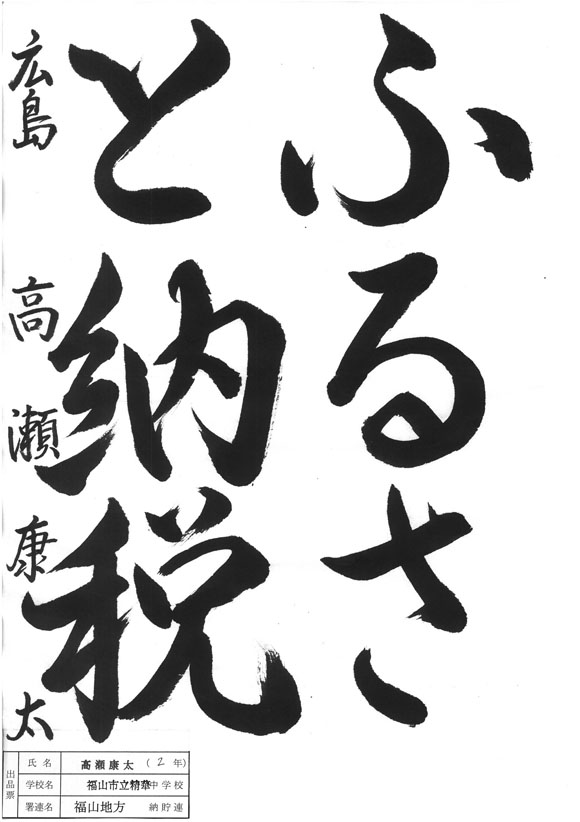 ふるさ
と納税
広島 高瀬康太
出品票
氏名 高瀬康太 (2年)
学校名 福山市立精華中学校
署連名 福山地方 納貯連